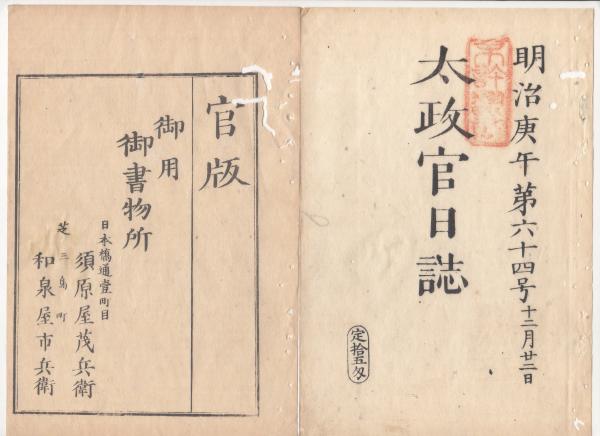 明治庚午第六十四号十二月廿二日
太政官日誌
定拾五匁
官版
御用
御書物所
日本橋通壹町目
須原屋茂兵衛
芝三島町
和泉屋市兵衛